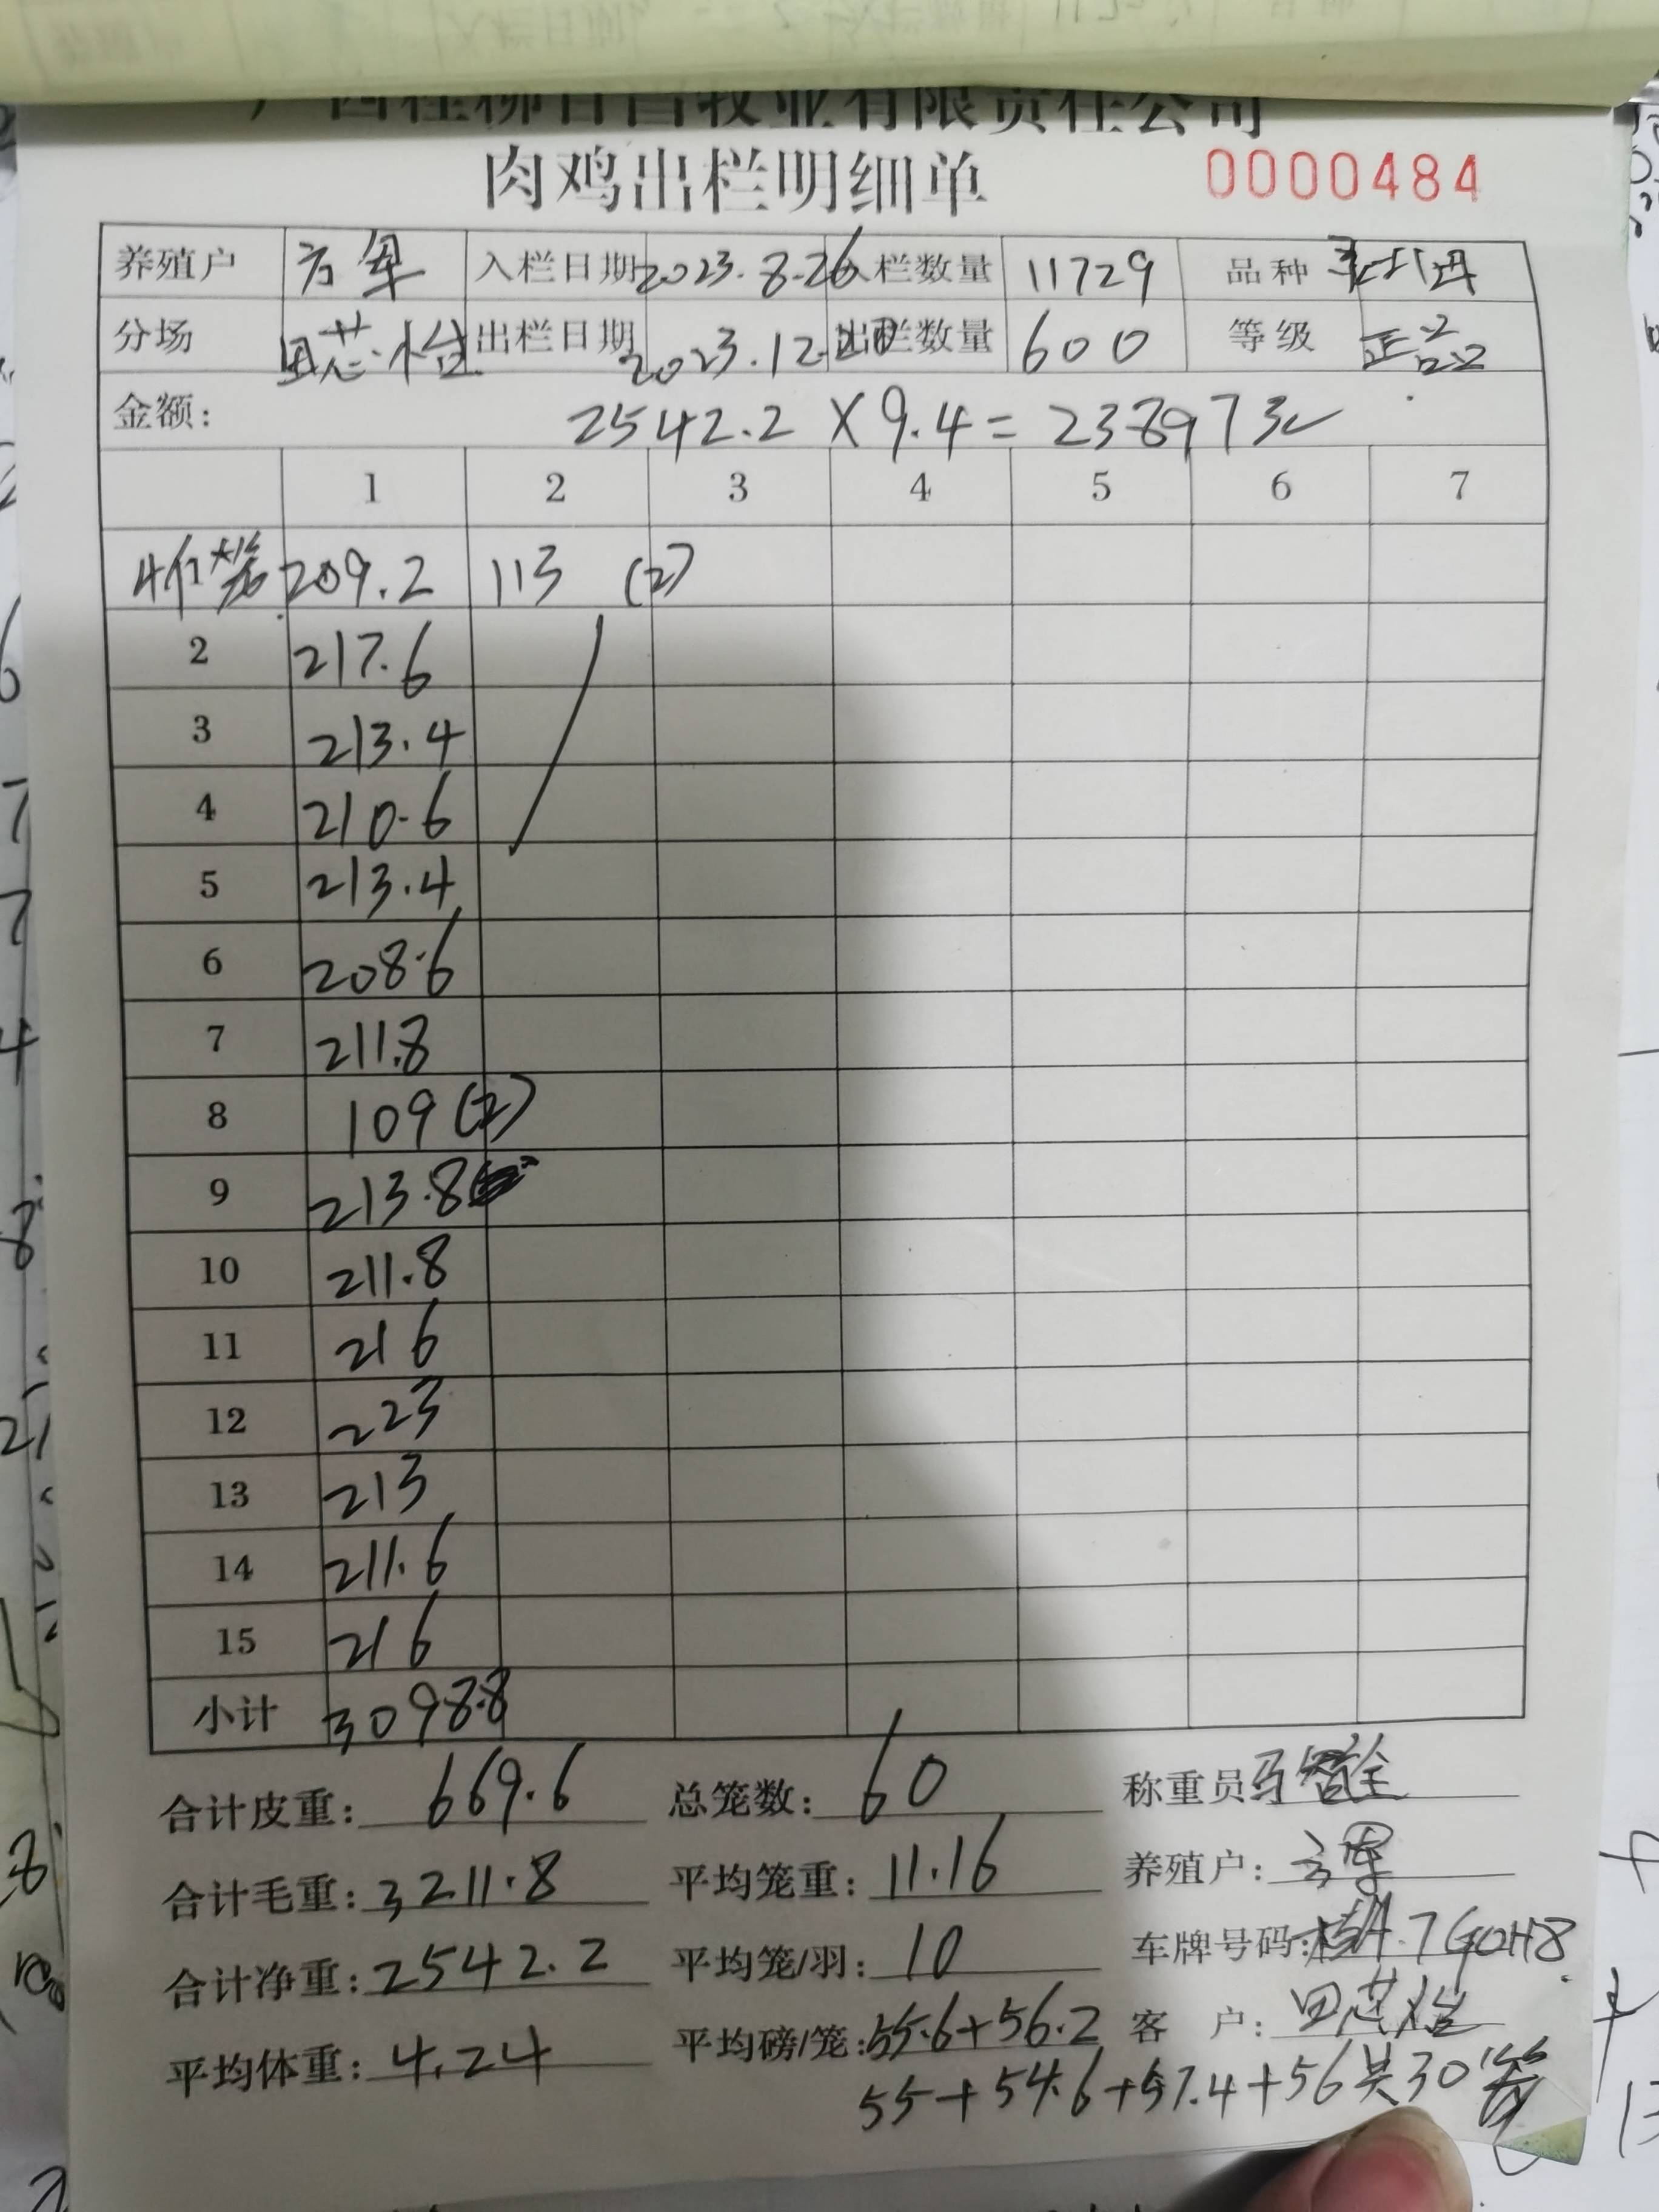 广西桂柳百昌牧业有限责任公司
肉鸡出栏明细单 0000484
养殖户 方军 入栏日期 2023.8.26 入栏数量 11729 品种
分场 田芯怡 出栏日期 2023.12.20 出栏数量 600 等级 正品
金额: 2542.2 X 9.4 = 23897元
1 2 3 4 5 6 7
4个*笼 209.2 113 (2)
2 217.6
3 213.4
4 210.6
5 213.4
6 208.6
7 211.8
8 109 (2)
9 213.8
10 211.8
11 216
12 223
13 213
14 211.6
15 216
小计 3098.8
合计皮重: 669.6 总笼数: 60 称重员
合计毛重: 3211.8 平均笼重: 11.16 养殖户: 方军
合计净重: 2542.2 平均笼/羽: 10 车牌号码: 7G0H8
平均体重: 4.24 平均磅/笼: 55.6+56.2 客户: 田芯怡
55+54.6+57.4+56共30笼